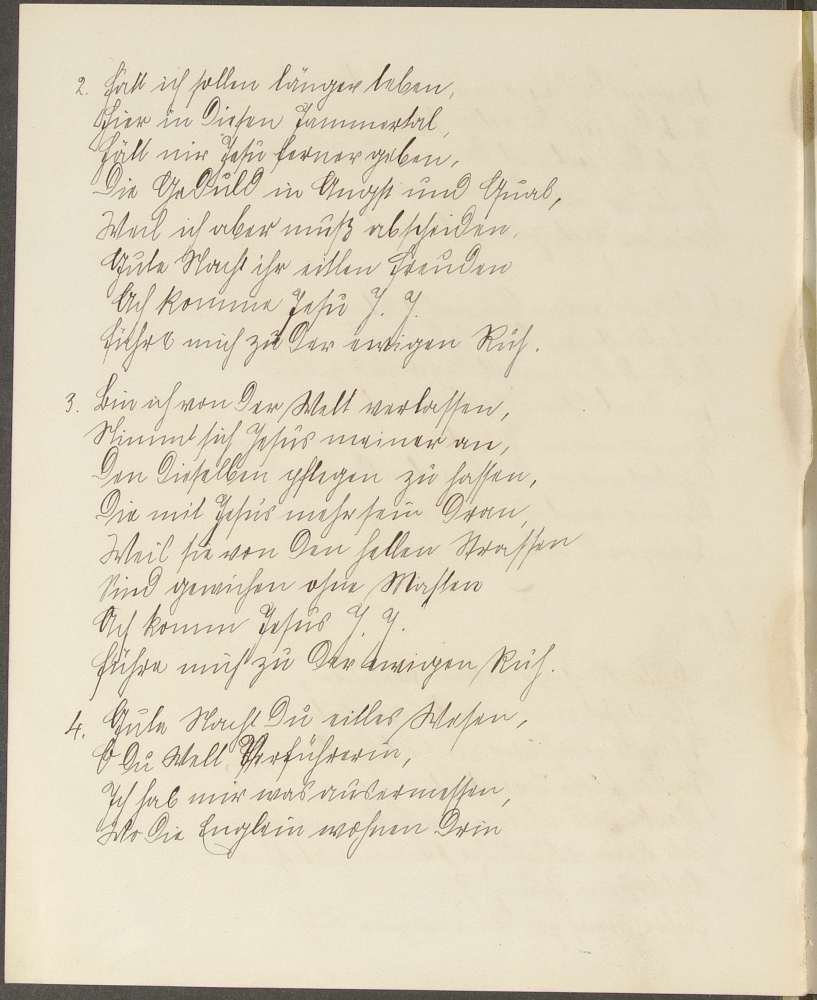 2. Hätt ich sollen länger leben,
Hier in diesen Jammertal,
Hätt mir Jesu ferner geben,
Die Geduld in Angst und Qual,
Weil ich aber muß abscheiden,
Gute Nacht ihr eitlen Freuden
Ach komme Jesu J. J.
Führe mich zu der ewigen Ruh.
3. Bin ich von der Welt verlassen,
Nimmt sich Jesus meiner an,
Den dieselben pflegen zu hassen,
Die mit Jesus mehr sein dran,
Weil sie von den hellen Strassen
Sind gewichen ohne Massen
Ach komm Jesus J. J.
Führe mich zu der ewigen Ruh.
4. Gute Nacht du eitles Wesen,
O du Welt Verführerin,
Ich hab mir was ausermessen,
Wo die Englein wohnen drin